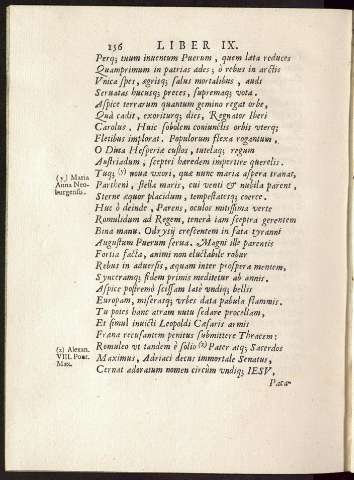 156 LIBER IX.
Perq; tuum inuentum Puerum, quem lata reduces
Quamprimum in patrias ades; ô rebus in arctis
Vnica spes, ægrisq; salus mortalibus, audi
Seruatas hucusq; preces, supremaq; vota.
Aspice terrarum quantum gemino regat orbe,
Quà cadit, exoriturq; dies, Regnator Iberi
Carolus. Huic sobolem coniunctis orbis vterq;
Fletibus implorat. Populorum flexa rogantum,
O Diua Hesperiæ custos, tutelaq; regum
Austriadum, sceptri hæredem impertire querelis.
Tuq; (y) noua vxori, quæ nunc maria aspera tranat,
(y) Maria
Anna Neo-
burgensis.
Partheni, stella maris, cui venti & nubila parent,
Sterne æquor placidum, tempestatesq; coerce.
Huc ô deinde, Parens, oculos mitissima verte
Romulidad ad Regem, tenerâ iam sceptra gerentem
Bina manu. Odrysij crescentem in fata tyranni
Augustum Puerum serua. Magni ille parentis
Fortia facta, animi non eluctabile robur
Rebus in aduersis, æquam inter prospera mentem,
Synceramq; fidem primis meditetur ab annis.
Aspice postremò scissam latè vndiq; bellis
Europam, miserasq; vrbes data pabula flammis.
Tu potes hanc atram nutu sedare procellam,
Et simul inuicti Leopoldi Cæsaris armis
Fræna recusantem penitus submittere Thracem:
Romuleo vt tandem è solio (z) Pater atq; Sacerdos
(z) Alexan.
VIII. Pont.
Max.
Maximus, Adriaci decus immortale Senatus,
Cernat adoratum nomen circùm vndiq; IESV,
Paca-